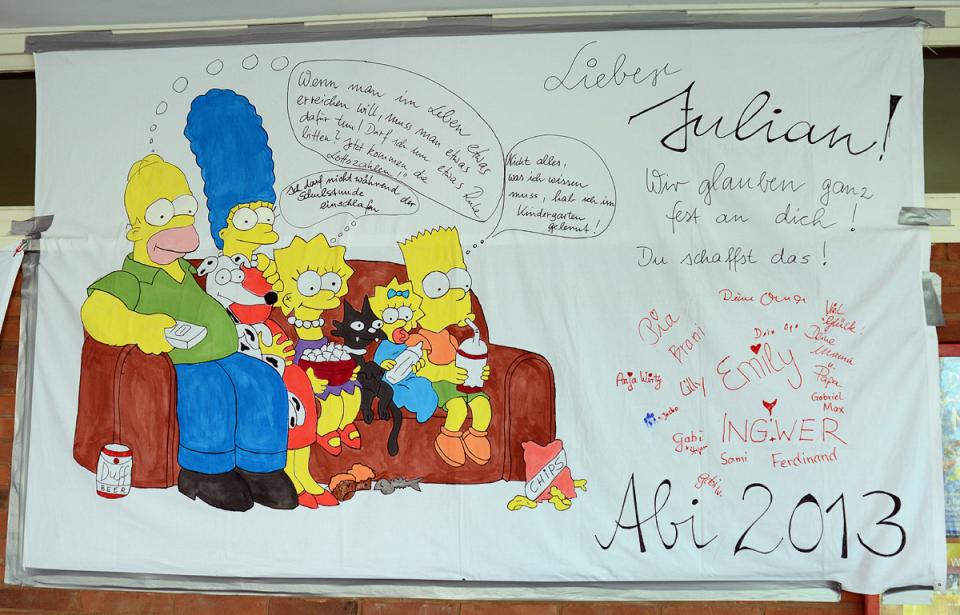 Wenn man im Leben etwas
erreichen will, muss man etwas
dafür tun! Darf ich um etwas Ruhe
bitten? Jetzt kommen die
Lottozahlen!
Ich darf nicht während der
Schulstunde
einschlafen
Nicht alles,
was ich wissen
muss, hab ich im
Kindergarten
gelernt!
Lieber
Julian!
Wir glauben ganz
fest an dich!
Du schaffst das!
Deine Oma
Pia
Brani
Dein Opa
Viel
Glück!
Deine
Mama
u.
Papa
Gabriel
Max
Emily
Anja Wirtz
Lilly
Gabi
INGWER
Sami
Ferdinand
Abi 2013
Duff
BEER
CHIPS